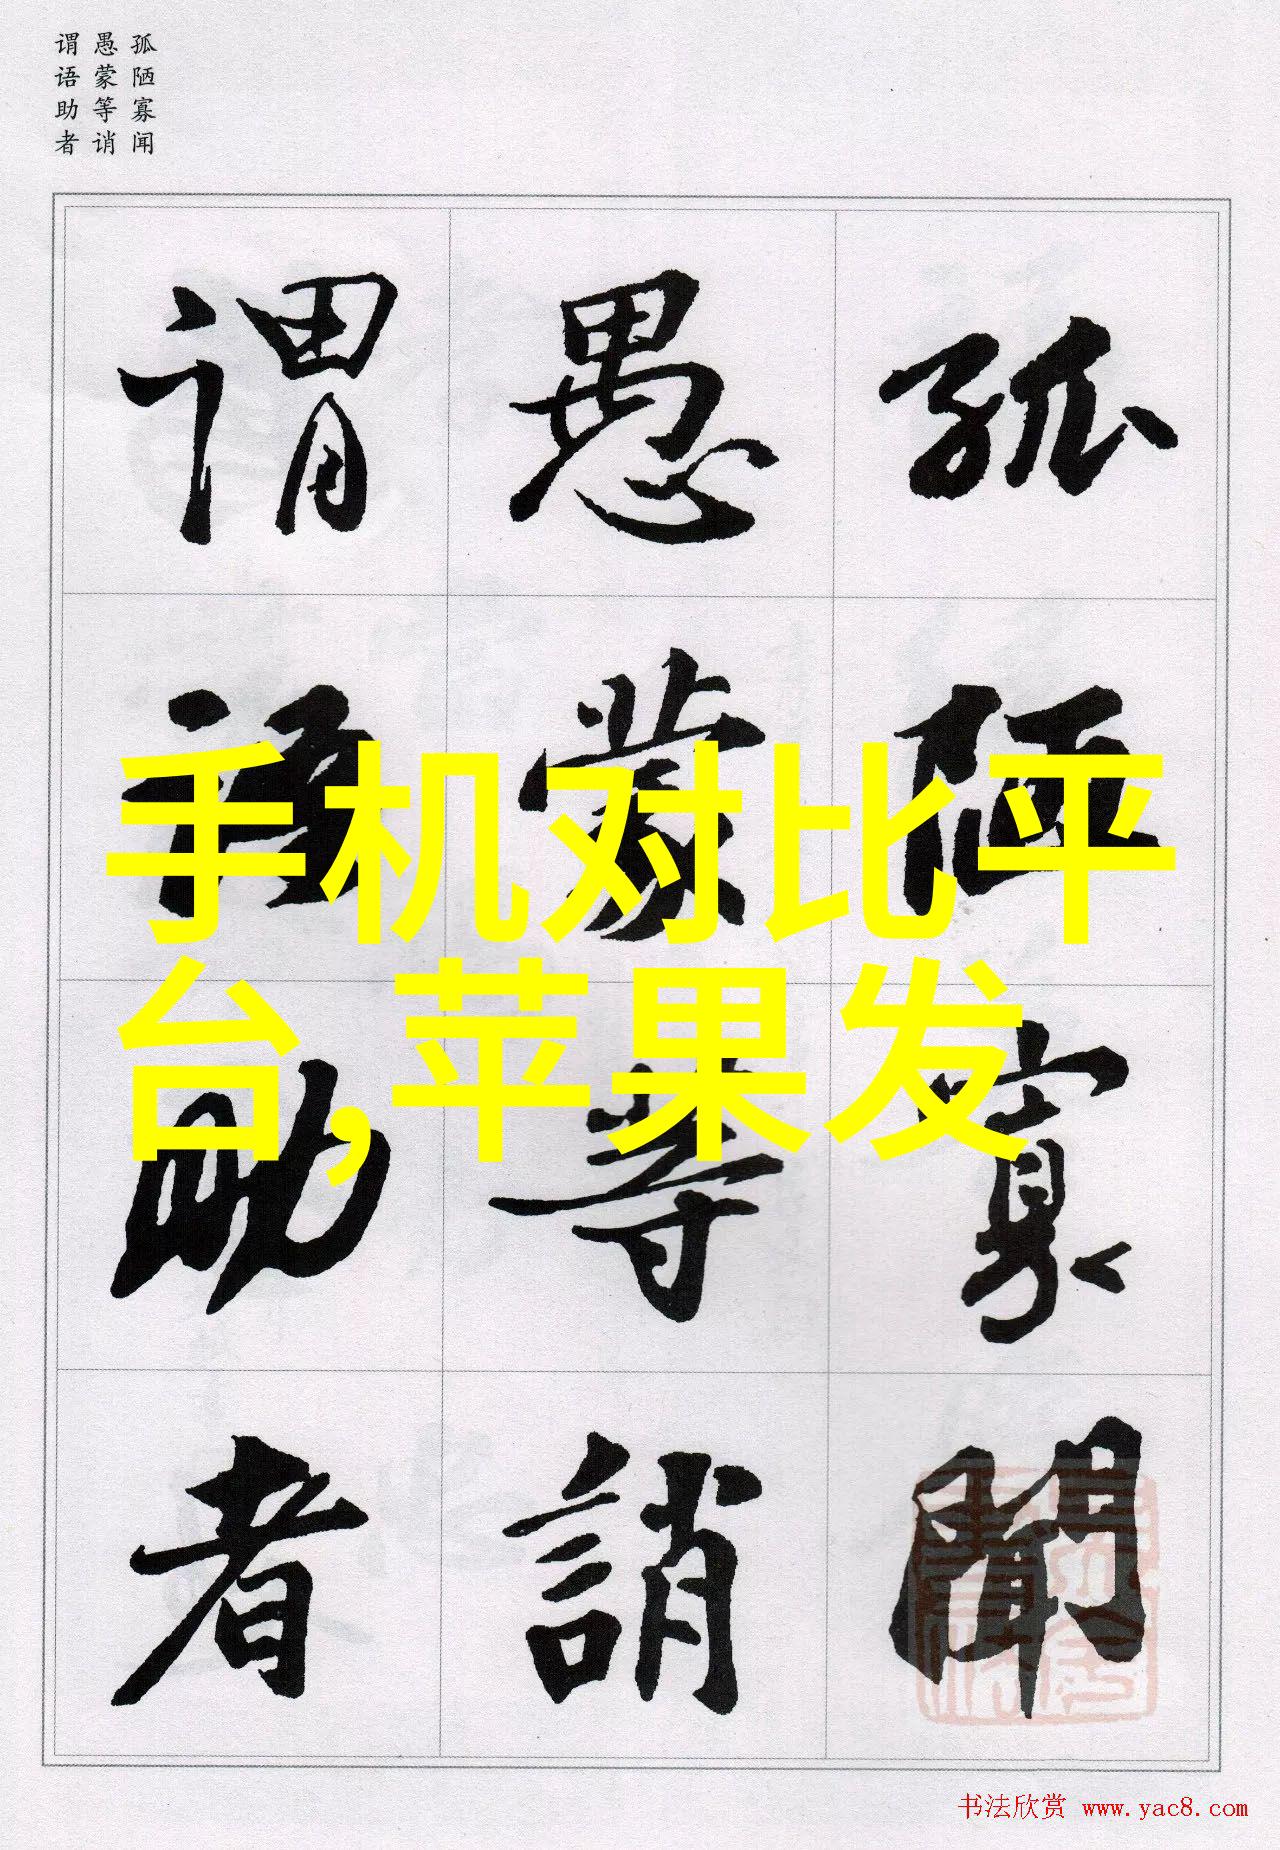 孤陋寡闻
愚蒙等诮
谓语助者
孤陋寡聞
愚蒙等誚
谓語助者
手机对比平
台,苹果发
书法欣赏 www.yac8.com